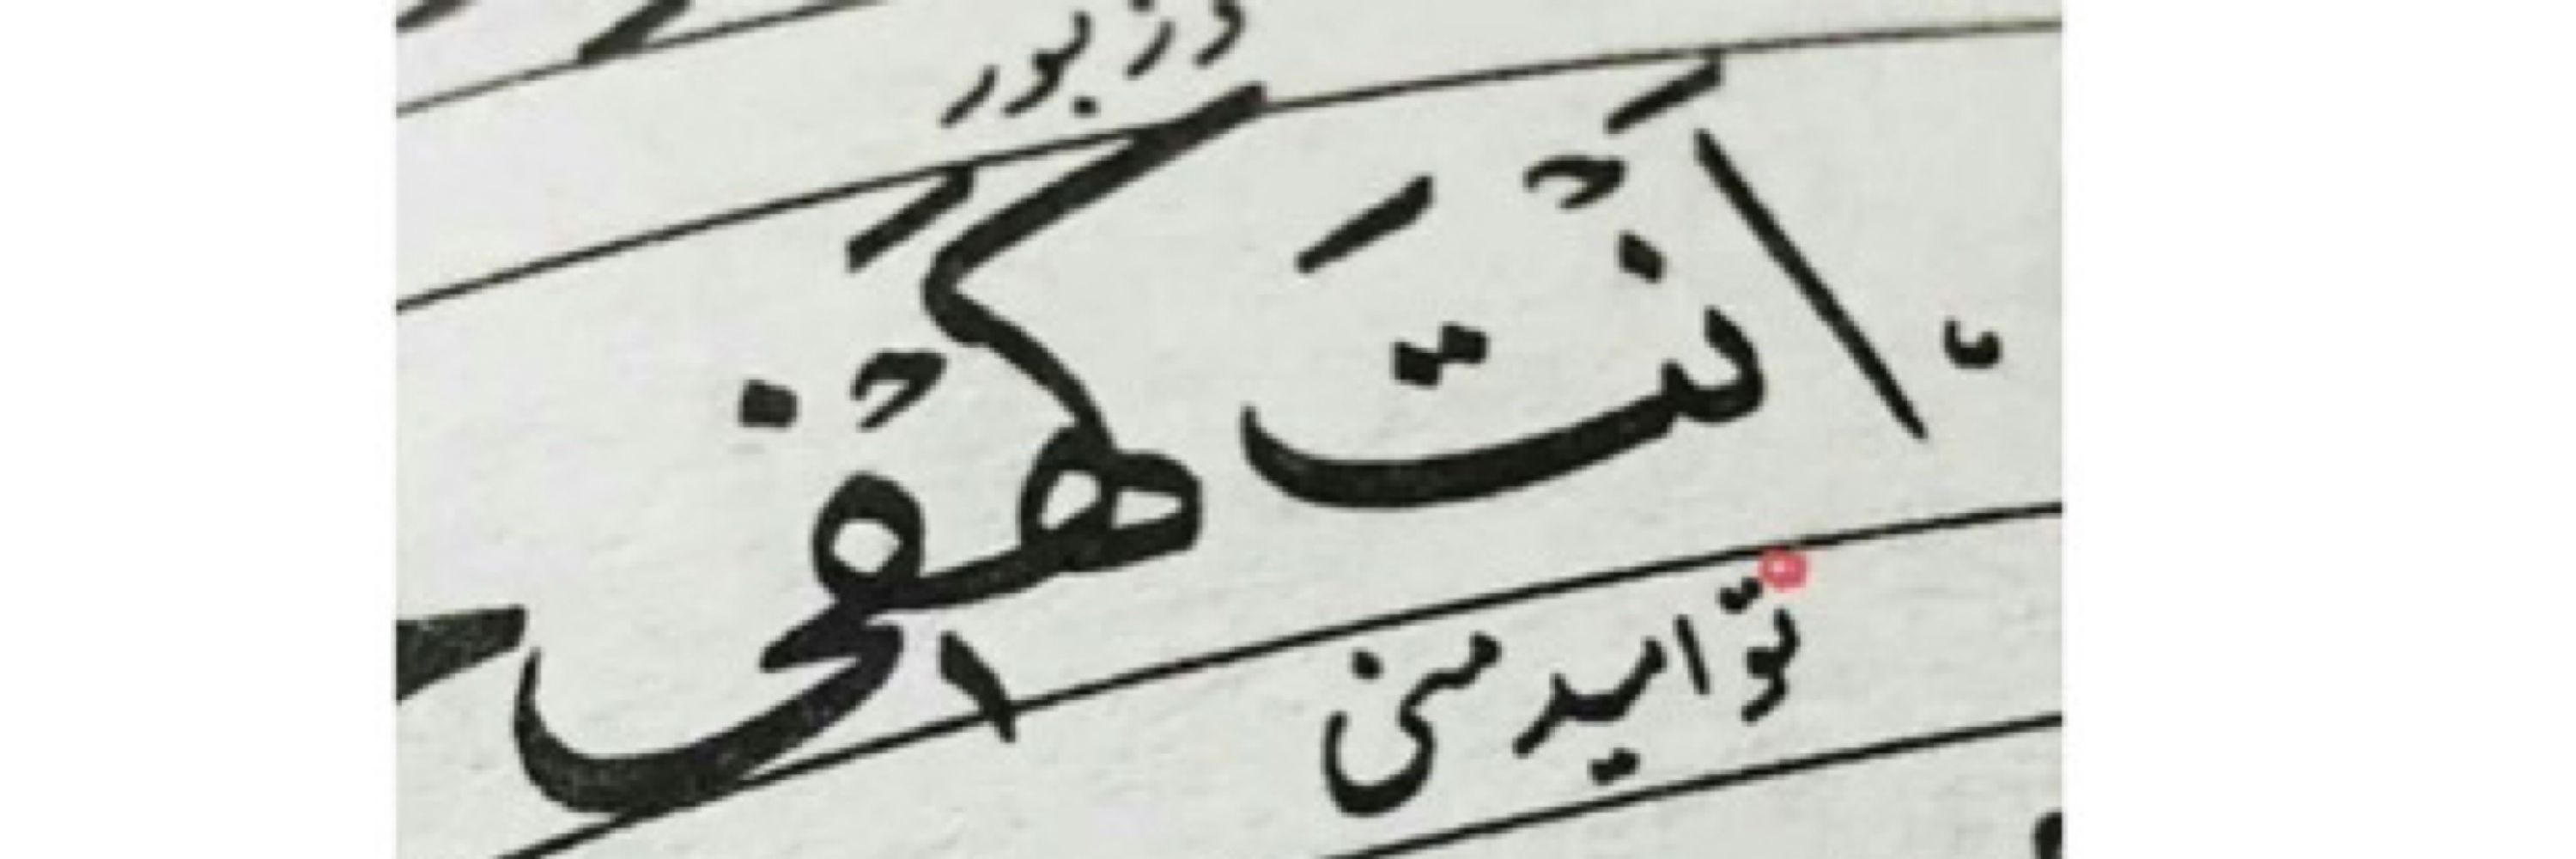 در بور
أَنْتَ كَهْفِی
تو امید منی